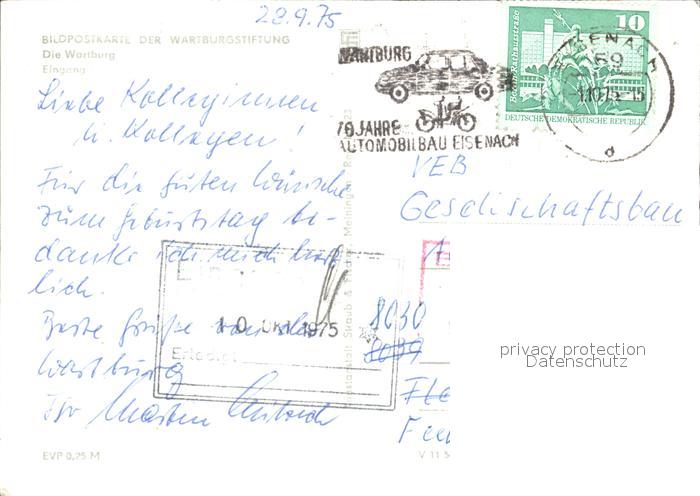 28.9.75
BILDPOSTKARTE DER WARTBURGSTIFTUNG
Die Wartburg
Eingang
Liebe Kolleginnen
u. Kollegen!
Für die guten Wünsche
zum Geburtstag be-
danke ich mich herz
lich.
Beste Grüße von der
Wartburg
Ihr
EVP 0,25 M
WARTBURG
70 JAHRE
AUTOMOBILBAU EISENACH
10
DEUTSCHE DEMOKRATISCHE REPUBLIK
EISENACH
59
d
VEB
Gesellschaftsbau
10. OKT. 1975
Erledigt
8030
8039
privacy protection
Datenschutz
V 11 5